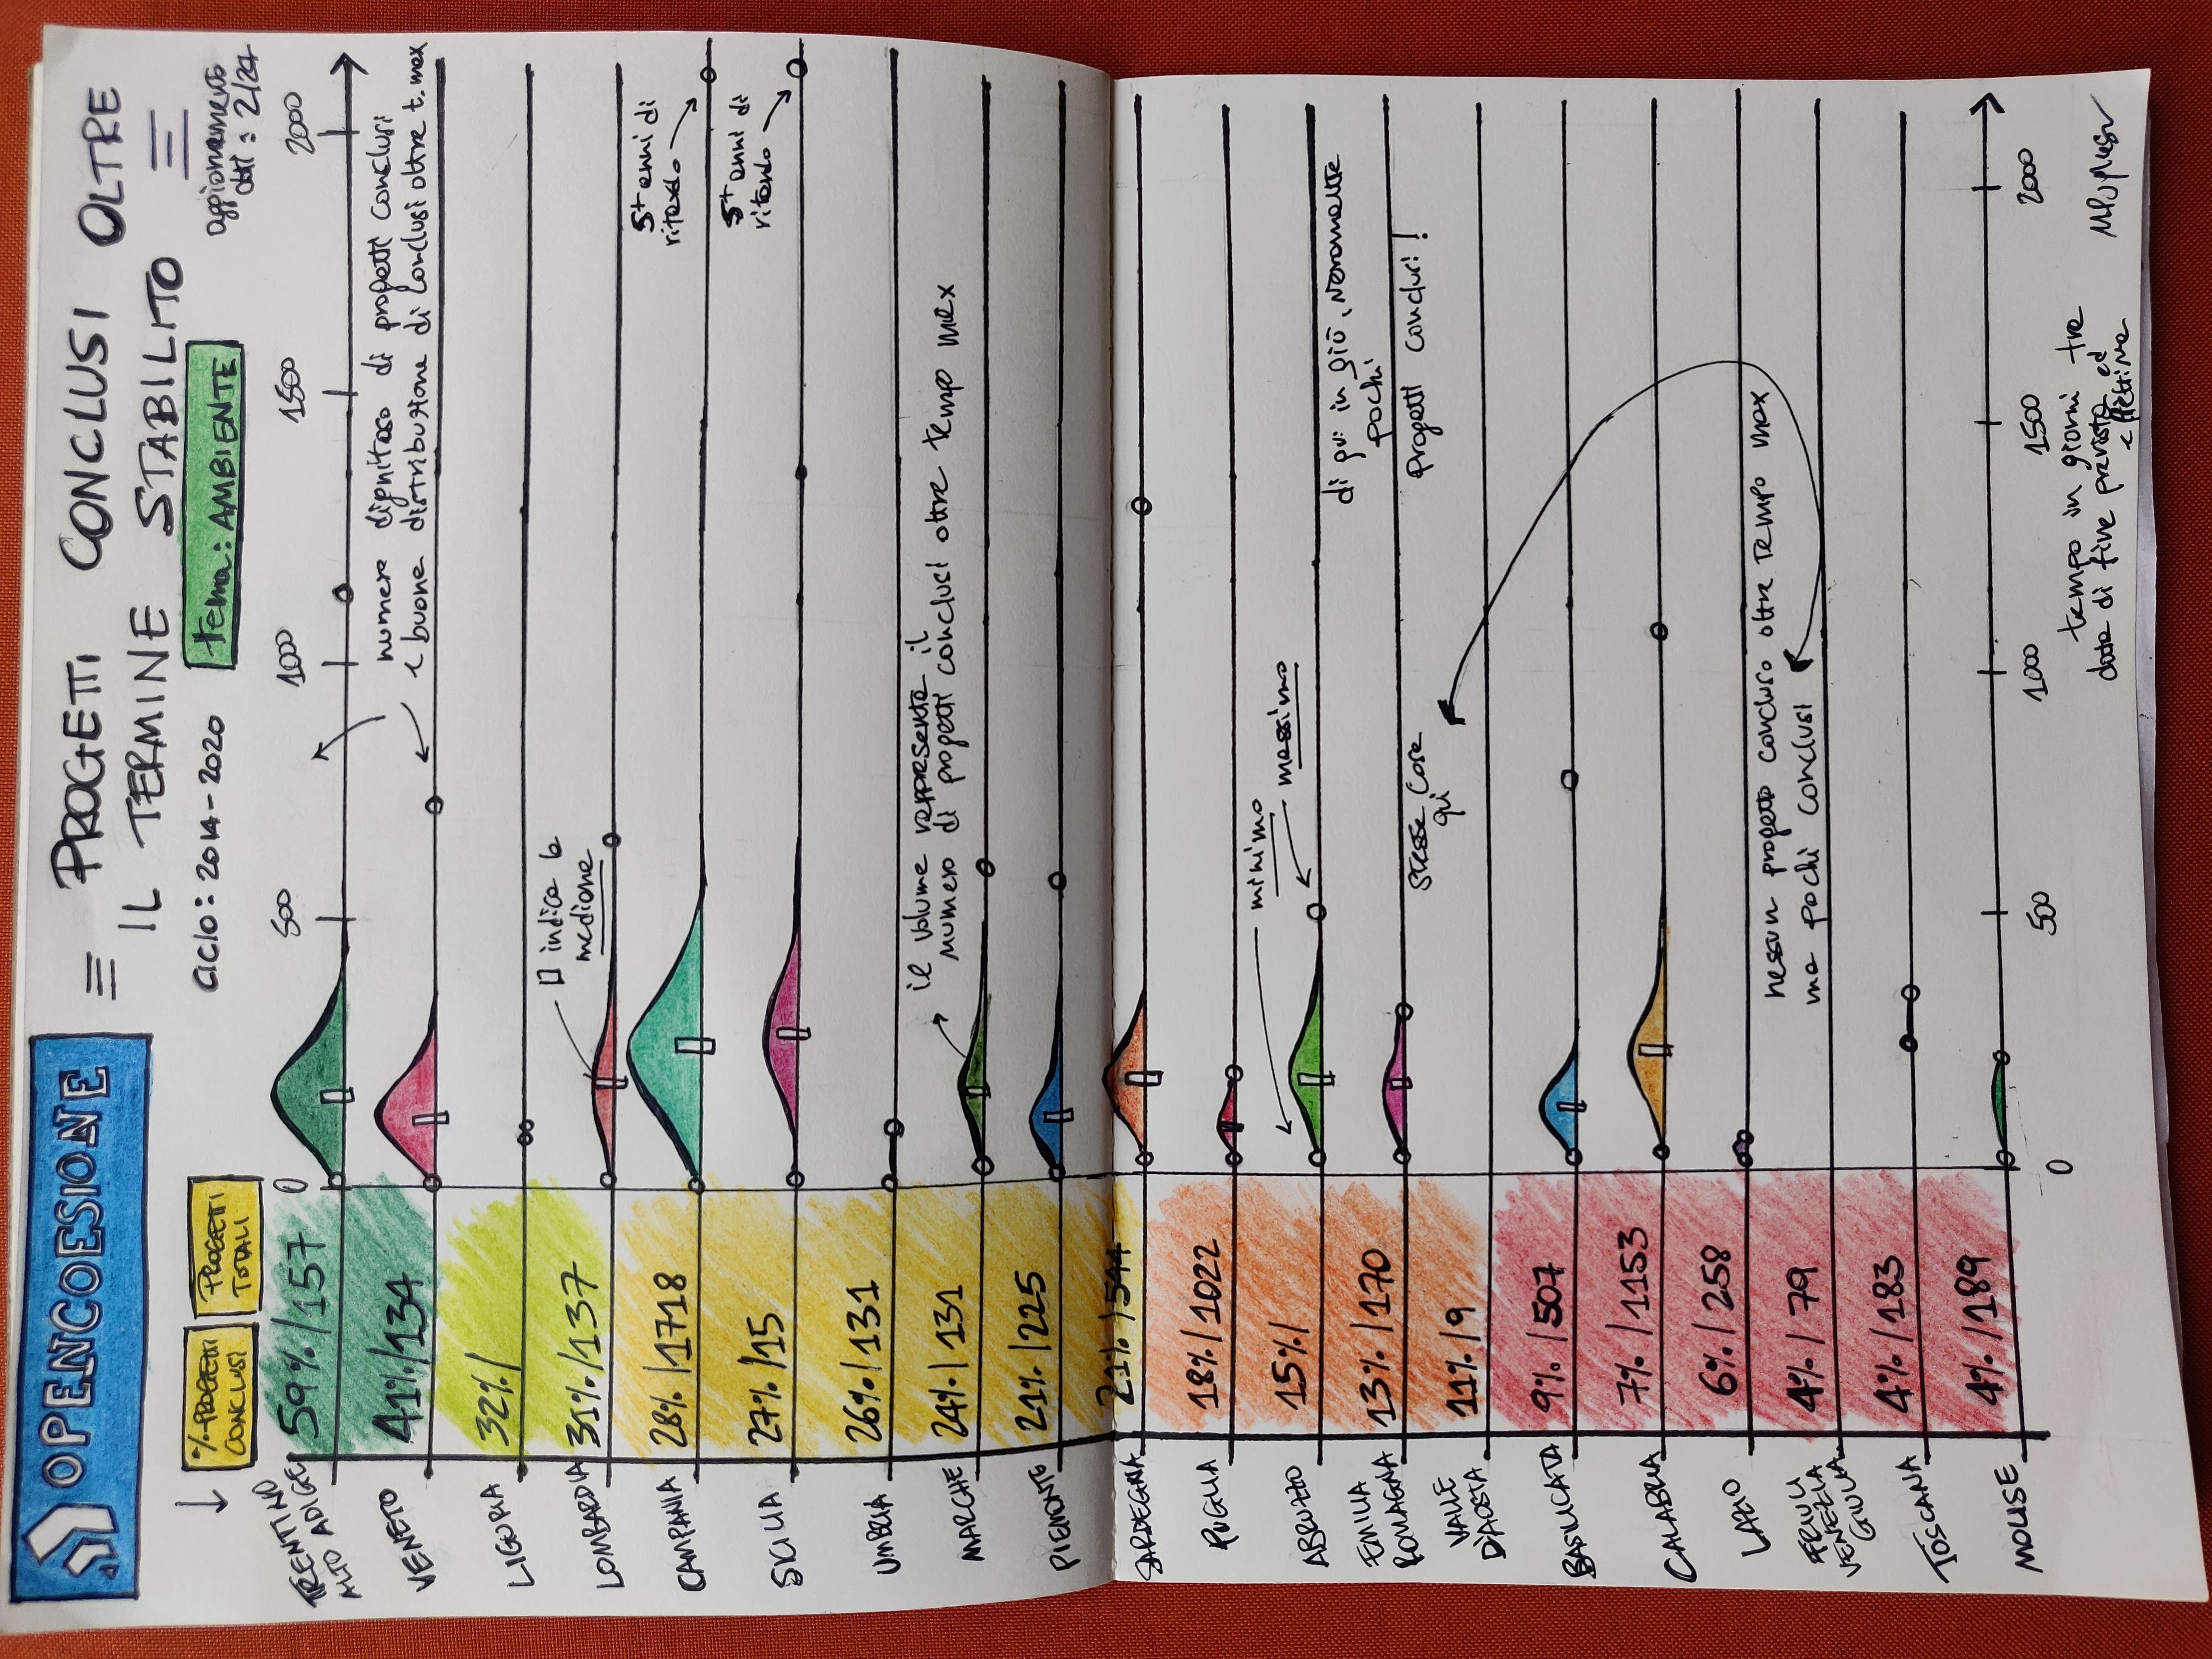 OPENCOESIONE
PROGETTI CONCLUSI OLTRE
IL TERMINE STABILITO
% PROGETTI
CONCLUSI
PROGETTI
TOTALI
CICLO: 2014-2020
tema: AMBIENTE
aggiornamento
dati: 2/24
TRENTINO
ALTO ADIGE
59% / 157
0 500 1000 1500 2000
VENETO
41% / 134
numero dignitoso di progetti conclusi
e buona distribuzione di conclusi oltre t. max
LIGURIA
32% /
LOMBARDIA
31% / 137
indica la
mediana
CAMPANIA
28% / 1718
5+ anni di
ritardo
SICILIA
27% / 15
5+ anni di
ritardo
UMBRIA
26% / 131
MARCHE
24% / 131
il volume rappresenta il
numero di progetti conclusi oltre tempo max
PIEMONTE
21% / 225
SARDEGNA
21% / 544
PUGLIA
18% / 1022
minimo
massimo
ABRUZZO
15% /
di qui in giù, veramente
pochi
progetti conclusi!
EMILIA
ROMAGNA
13% / 170
stessa cosa
qui
VALLE
D'AOSTA
11% / 9
BASILICATA
9% / 507
CALABRIA
7% / 1153
LAZIO
6% / 258
nessun progetto concluso oltre tempo max
ma pochi conclusi
FRIULI
VENEZIA
GIULIA
4% / 79
TOSCANA
4% / 183
MOLISE
4% / 189
0 500 1000 1500 2000
tempo in giorni tra
data di fine prevista ed
effettiva